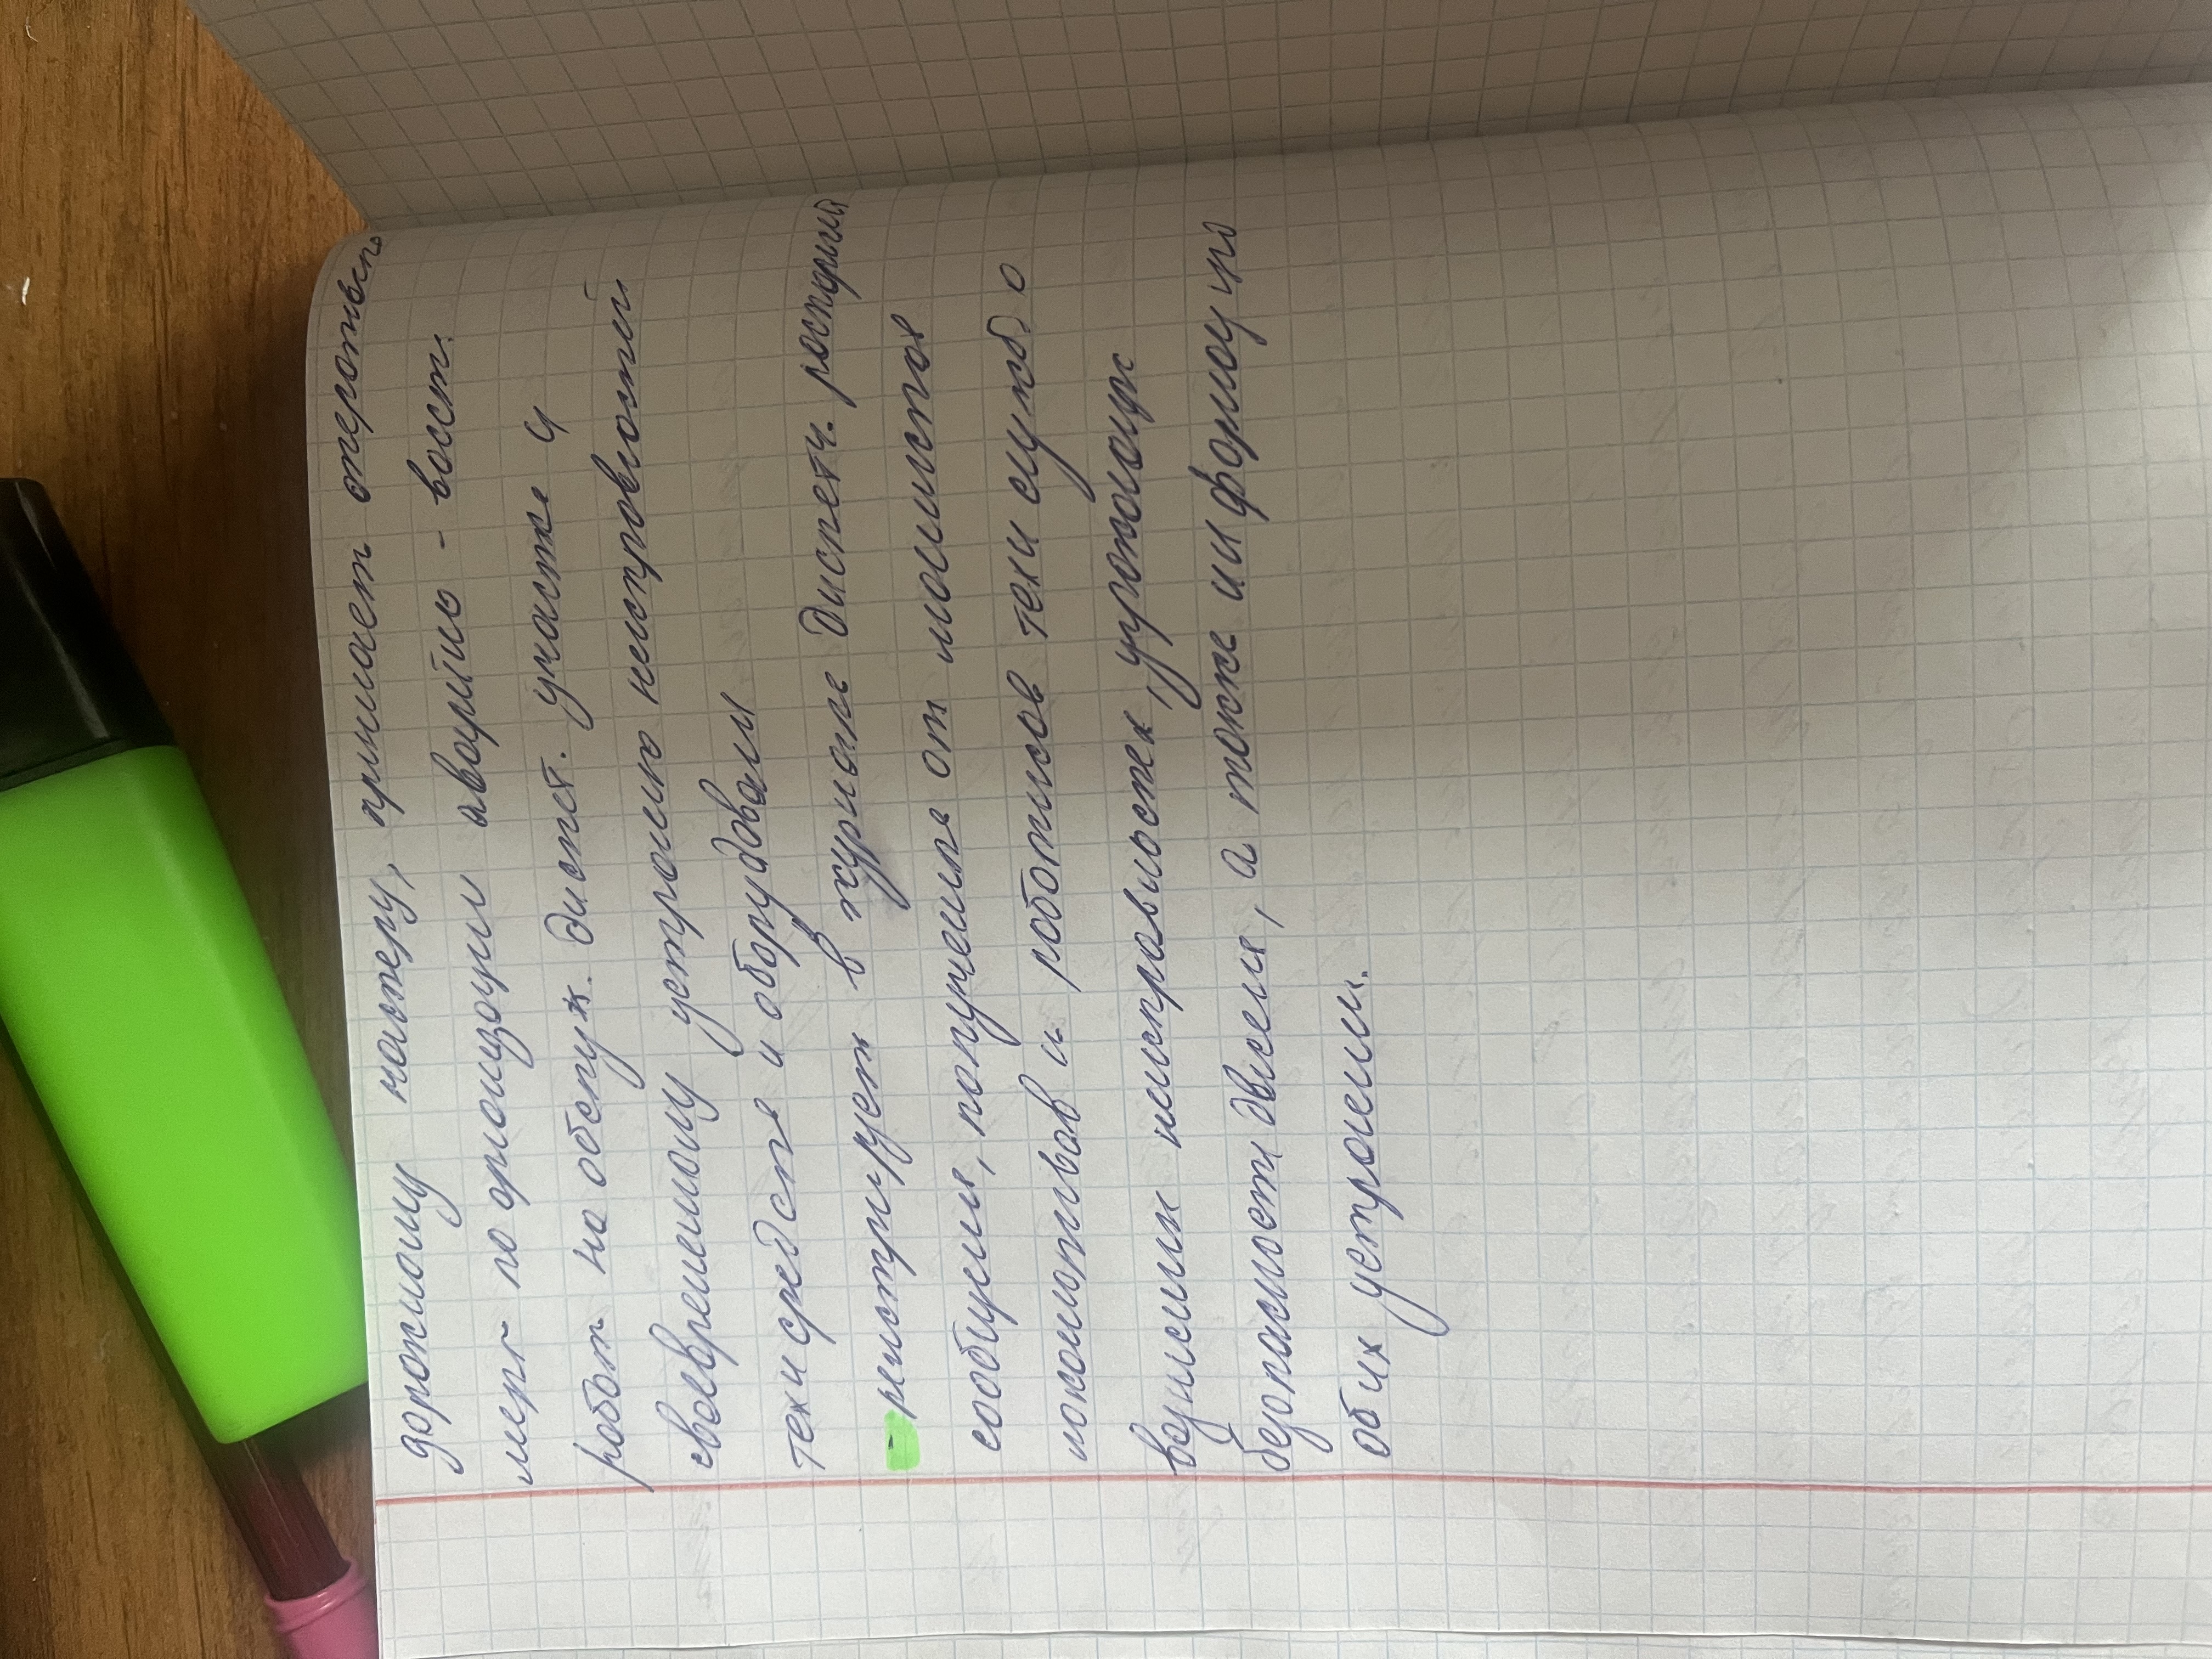 дорожному мастеру, принимает оператив
меры по организации аварийно - восст.
работ на обслуж. диспет. участке и
своевременному устранению неисправностей
техн средств и оборудован
- регистрирует в журнале диспетч. распоряж
сообщения, полученные от машинистов
локомотивов и работников техн служб о
возникших неисправностях, угрожающих
безопасности движения, а также информацию
об их устранении.